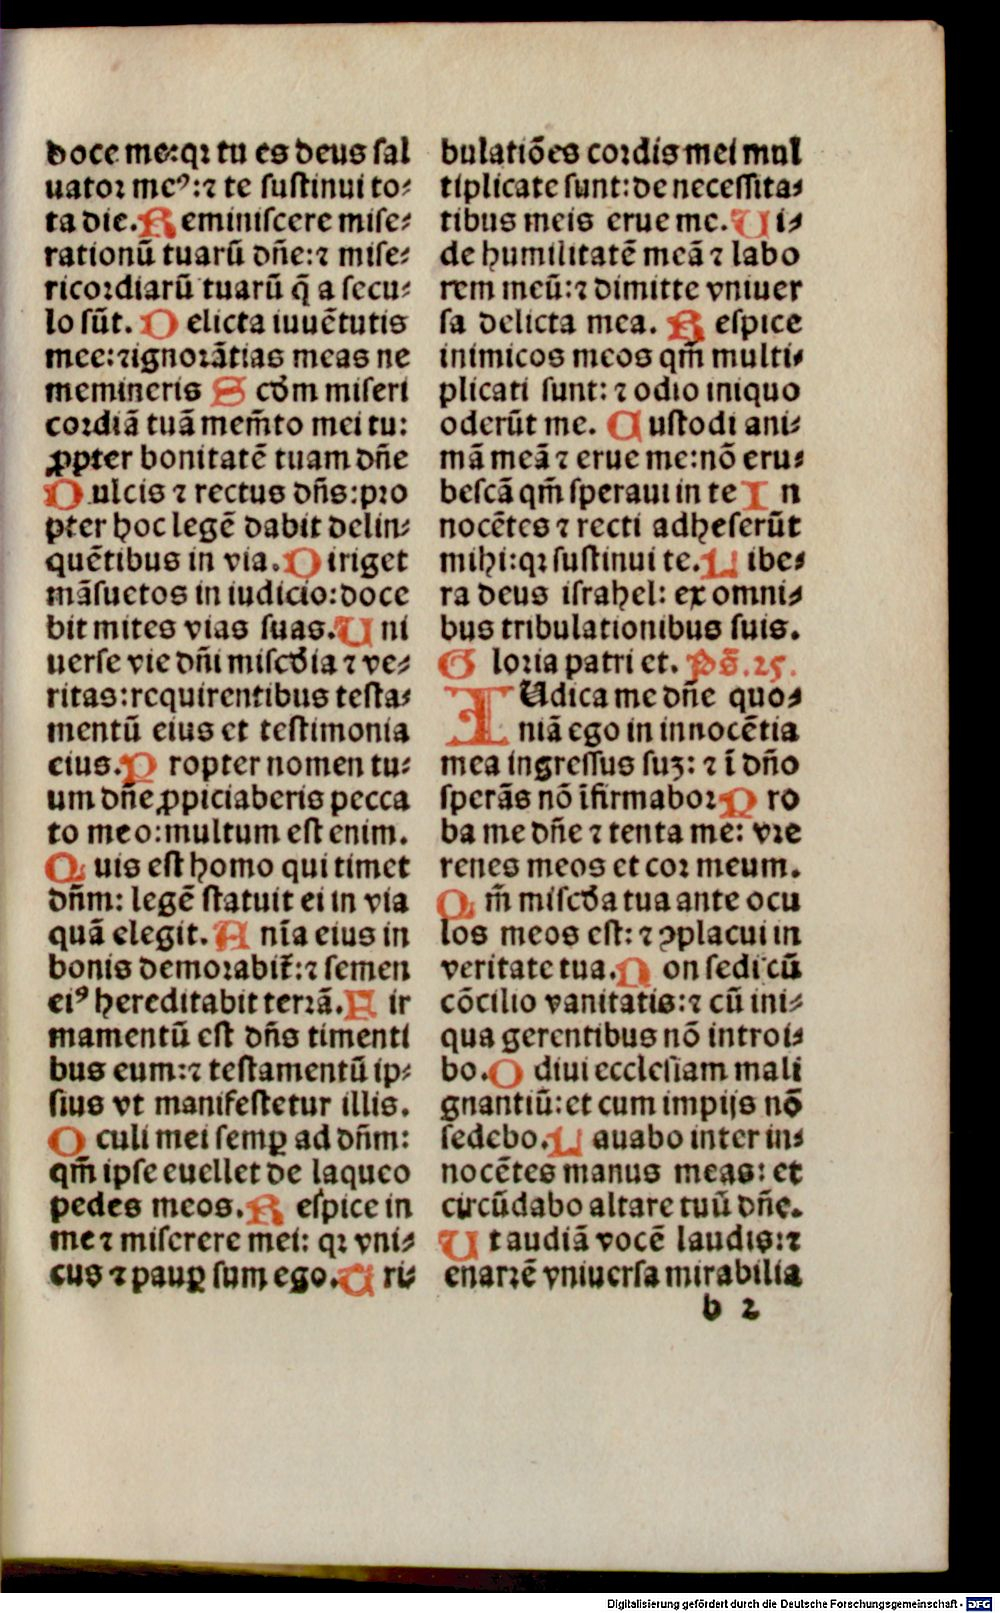 doce me:qꝛ tu es deus ſal
uatoꝛ meꝰ:⁊ te ſuſtinui to⸗
ta die. Reminiſcere miſe⸗
rationū tuarū dn̄e:⁊ miſe⸗
ricoꝛdiarū tuarū q̄ a ſecu⸗
lo ſūt. Delicta iuuētutis
mee:⁊ignoꝛātias meas ne
memineris Scd̄m miſeri
coꝛdiā tuā mem̄to mei tu:
ꝓpter bonitatē tuam dn̄e
Dulcis ⁊ rectus dn̄s:pꝛo
pter hoc legē dabit delin⸗
quētibus in via. Diriget
māſuetos in iudicio:doce
bit mites vias ſuas. Uni
uerſe vie dn̄i miſcd̄ia ⁊ ve⸗
ritas:requirentibus teſta⸗
mentū eius et teſtimonia
eius. Propter nomen tu⸗
um dn̄e ꝓpiciaberis pecca
to meo:multum eſt enim.
Quis eſt homo qui timet
dn̄m: legē ſtatuit ei in via
quā elegit. Anīa eius in
bonis demoꝛabit̄:⁊ ſemen
eiꝰ hereditabit terrā. Fir
mamentū eſt dn̄s timenti
bus eum:⁊ teſtamentū ip⸗
ſius vt manifeſtetur illis.
Oculi mei ſemꝑ ad dn̄m:
qm̄ ipſe euellet de laqueo
pedes meos. Reſpice in
me ⁊ miſerere mei: qꝛ vni⸗
cus ⁊ pauꝑ ſum ego. Tri⸗
bulatiōes coꝛdis mei mul
tiplicate ſunt:de neceſſita⸗
tibus meis erue me. Ui⸗
de humilitatē meā ⁊ labo
rem meū:⁊ dimitte vniuer
ſa delicta mea. Reſpice
inimicos meos qm̄ multi⸗
plicati ſunt: ⁊ odio iniquo
oderūt me. Cuſtodi ani⸗
mā meā ⁊ erue me:nō eru⸗
beſcā qm̄ ſperaui in te In
nocētes ⁊ recti adheſerūt
mihi:qꝛ ſuſtinui te. Libe⸗
ra deus iſrahel: ex omni⸗
bus tribulationibus ſuis.
Gloꝛia patri et. Ps̄.25.
IUdica me dn̄e quo⸗
niā ego in innocētia
mea ingreſſus ſuꝫ: ⁊ ī dn̄o
ſperās nō īfirmaboꝛ Pro
ba me dn̄e ⁊ tenta me: vꝛe
renes meos et coꝛ meum.
Qm̄ miſcd̄a tua ante ocu
los meos eſt: ⁊ ꝯplacui in
veritate tua. Non ſedi cū
cōcilio vanitatis:⁊ cū ini⸗
qua gerentibus nō introi⸗
bo. Odiui eccleſiam mali
gnantiū:et cum impijs nō
ſedebo. Lauabo inter in⸗
nocētes manus meas: et
circūdabo altare tuū dn̄e.
Ut audiā vocē laudis:⁊
enarrē vniuerſa mirabilia
b 2
Digitalisierung gefördert durch die Deutsche Forschungsgemeinschaft - DFG